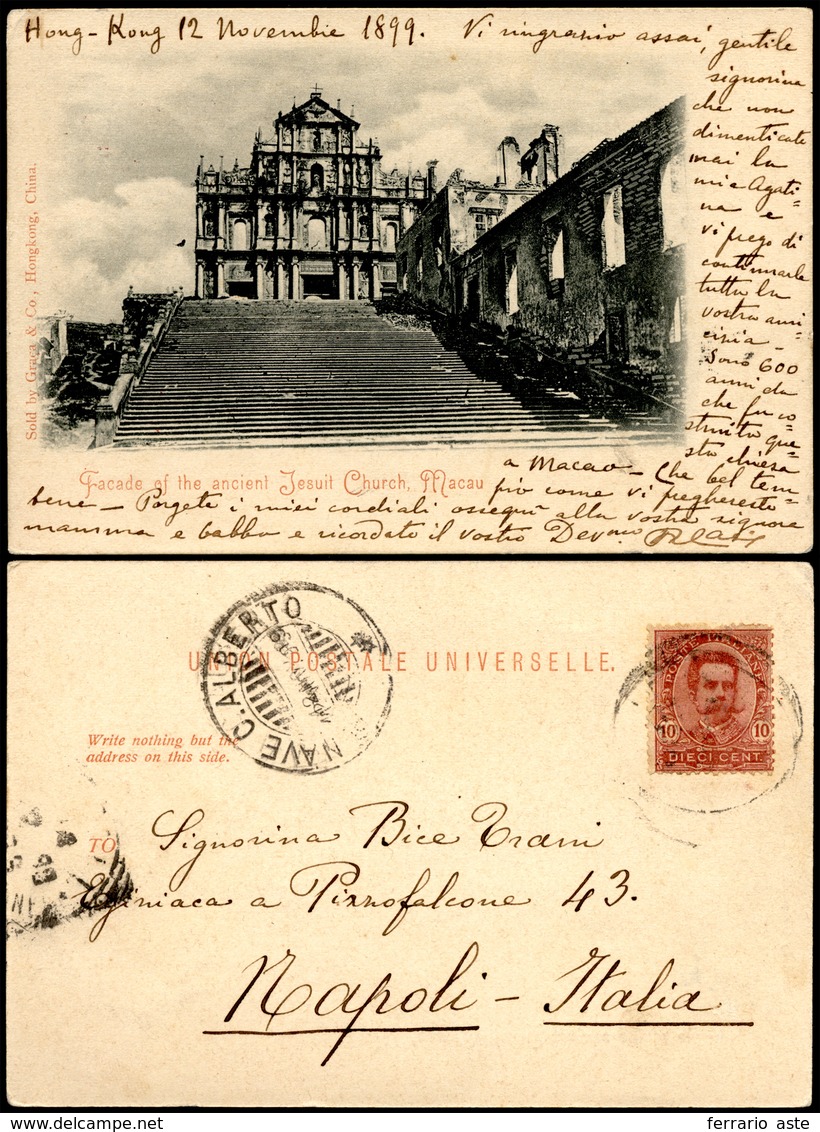 Hong-Kong 12 Novembre 1899. Vi ringrazio assai, gentile
signorina
che non
dimenticate
mai la
mia Agati-
na e
vi prego di
continuarle
tutta la
vostra ami-
cizia -
Sono 600
anni da
che fu co-
struita que-
sta chiesa
a Macao - Che bel tem-
pio come vi preghereste
bene - Porgete i miei cordiali ossequi alla vostra signora
mamma e babbo e ricordate il vostro Dev.mo
Sold by Graça & Co., Hongkong, China.
Facade of the ancient Jesuit Church, Macau
NAVE C. ALBERTO
UNION POSTALE UNIVERSELLE.
POSTE ITALIANE
10 10
DIECI CENT.
Write nothing but the
address on this side.
TO
Signorina Bice Trani
Egiziaca a Pizzofalcone 43.
Napoli - Italia
ferrario aste